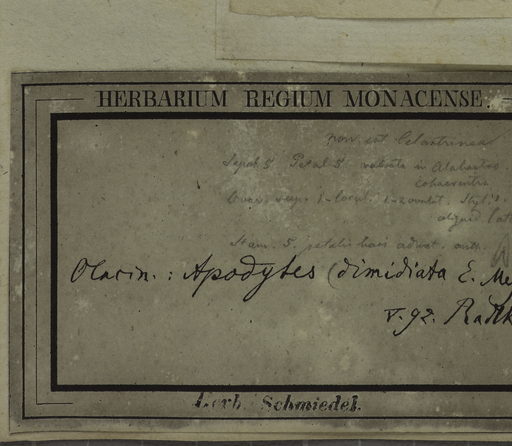 HERBARIUM REGIUM MONACENSE.
non est Celastrinea
Sepal. 5 Petal 5 valvata in Alabastro
cohaerentia
Ovar. sup. 1-locul. 1-2 ovulat. Styl.
Stam. 5, petalis basi adnat.
Olacin.: Apodytes (dimidiata E. Me
v. 92. Radlk
Herb. Schmiedel.